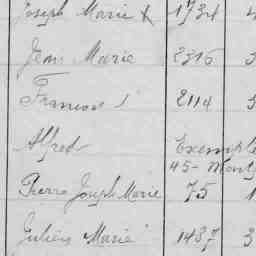 Joseph Marie 1734
Jean Marie 2316
François 2114
Alfred Exempté
45-
Pierre Joseph Marie 75 1
Julien Marie 1487 3